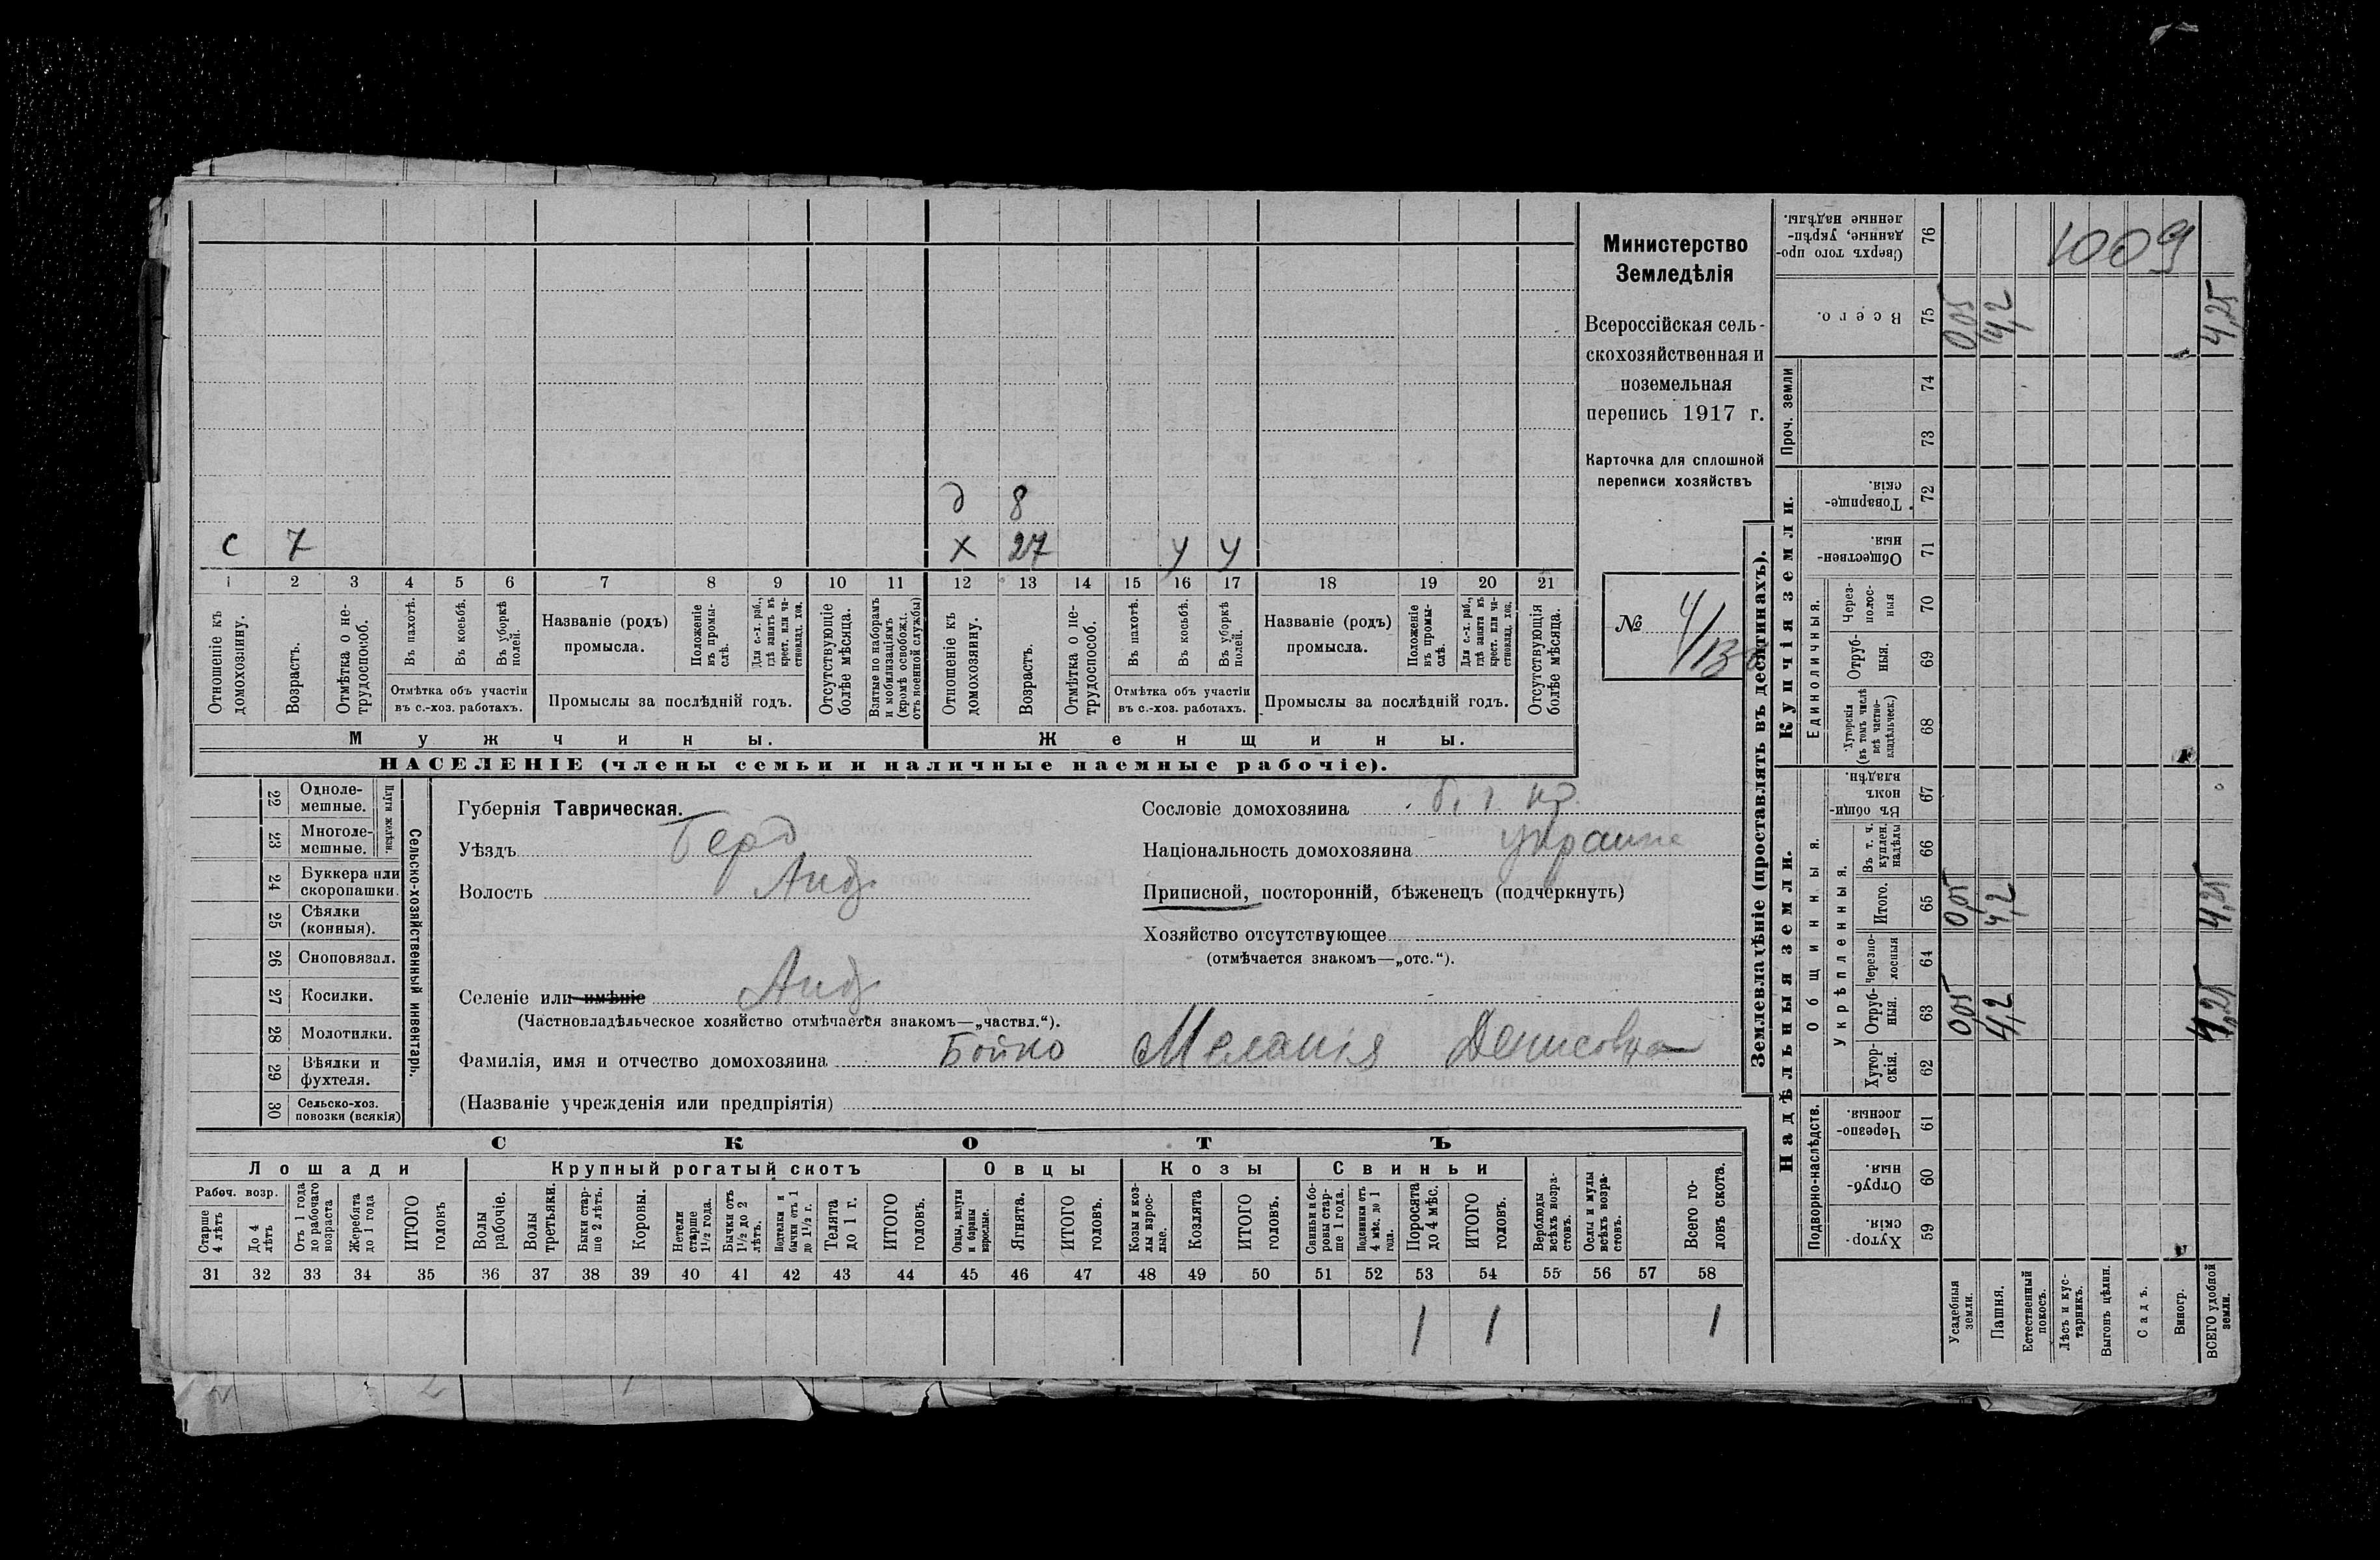 Министерство
Земледѣлія
Всероссійская сель-
скохозяйственная и
поземельная
перепись 1917 г.
Карточка для сплошной
переписи хозяйствъ
№ 4/13
1009
д 8
с 7
х 27 у у
1 2 3 4 5 6 7 8 9 10 11 12 13 14 15 16 17 18 19 20 21
Отношеніе къ домохозяину.
Возрастъ.
Отмѣтка о не-трудоспособ.
Въ пахотѣ.
Въ косьбѣ.
Въ уборкѣ полей.
Отмѣтка объ участіи
въ с.-хоз. работахъ.
Названіе (родъ)
промысла.
Положеніе въ промы-слѣ.
Для с.-х. раб., гдѣ занятъ въ крест. или ча-стновлад. хоз.
Промыслы за послѣдній годъ.
Отсутствующіе болѣе мѣсяца.
Взятые по наборамъ и мобилизаціямъ (кромѣ освобожд. отъ военной службы)
Отношеніе къ домохозяину.
Возрастъ.
Отмѣтка о не-трудоспособ.
Въ пахотѣ.
Въ косьбѣ.
Въ уборкѣ полей.
Отмѣтка объ участіи
въ с.-хоз. работахъ.
Названіе (родъ)
промысла.
Положеніе въ промы-слѣ.
Для с.-х. раб., гдѣ занята въ крест. или ча-стновлад. хоз.
Промыслы за послѣдній годъ.
Отсутствующія болѣе мѣсяца.
Мужчины.
Женщины.
НАСЕЛЕНІЕ (члены семьи и наличные наемные рабочіе).
Сельско-хозяйственный инвентарь.
Плуги желѣзн.
22 Одноле-мешные.
23 Многоле-мешные.
24 Буккера или скоропашки.
25 Сѣялки (конныя).
26 Сноповязал.
27 Косилки.
28 Молотилки.
29 Вѣялки и фухтеля.
30 Сельско-хоз. повозки (всякія)
Губернія Таврическая.
Уѣздъ Берд
Волость Анд
Селеніе или имѣніе Анд
(Частновладѣльческое хозяйство отмѣчается знакомъ—„частвл.“).
Фамилія, имя и отчество домохозяина Бойко Меланія Денисовна
(Названіе учрежденія или предпріятія)
Сословіе домохозяина
Національность домохозяина украине
Приписной, посторонній, бѣженецъ (подчеркнуть)
Хозяйство отсутствующее
(отмѣчается знакомъ—„отс.“).
СКОТЪ
Лошади
Крупный рогатый скотъ
Овцы
Козы
Свиньи
Рабоч. возр.
Старше 4 лѣтъ
До 4 лѣтъ
Отъ 1 года до рабочаго возраста
Жеребята до 1 года
ИТОГО головъ
Волы рабочіе.
Волы третьяки.
Быки стар-ше 2 лѣтъ.
Коровы.
Нетели старше 1½ года.
Бычки отъ 1½ до 2 лѣтъ.
Подтелки и бычки отъ 1 до 1½ г.
Телята до 1 г.
ИТОГО головъ.
Овцы, валухи и бараны взрослые.
Ягнята.
ИТОГО головъ.
Козы и коз-лы взрос-лые.
Козлята
ИТОГО головъ.
Свиньи и бо-ровы стар-ше 1 года.
Подсвинки отъ 4 мѣс. до 1 года.
Поросята до 4 мѣс.
ИТОГО головъ.
Верблюды всѣхъ возра-стовъ.
Ослы и мулы всѣхъ возра-стовъ.
Всего го-ловъ скота.
31 32 33 34 35 36 37 38 39 40 41 42 43 44 45 46 47 48 49 50 51 52 53 54 55 56 57 58
1 1 1
Землевладѣніе (проставлять въ десятинахъ).
Надѣльныя земли.
Купчія земли.
Проч. земли
Подворно-наслѣдств.
Общинныя.
Укрѣпленныя.
Единоличныя.
Хутор-скія. 59
Отруб-ныя. 60
Черезпо-лосныя. 61
Хутор-скія. 62
Отруб-ныя. 63 0,05 4,2 4,25
Черезпо-лосныя 64
Итого. 65 0,05 4,2 4,25
Въ т. ч. куплен. надѣлы 66
Въ общин-номъ владѣн. 67
Хуторскія (въ томъ числѣ всѣ частно-владѣльческ.) 68
Отруб-ныя. 69
Через-полос-ныя 70
Обществен-ныя. 71
Товарище-скія. 72
73
74
Всего. 75 0,05 4,2 4,25
Сверхъ того про-данные, укрѣп-ленные надѣлы. 76
Усадебныя земли.
Пашня.
Естественный покосъ.
Лѣсъ и кус-тарникъ.
Выгонъ цѣлин.
Садъ.
Виногр.
ВСЕГО удобной земли.